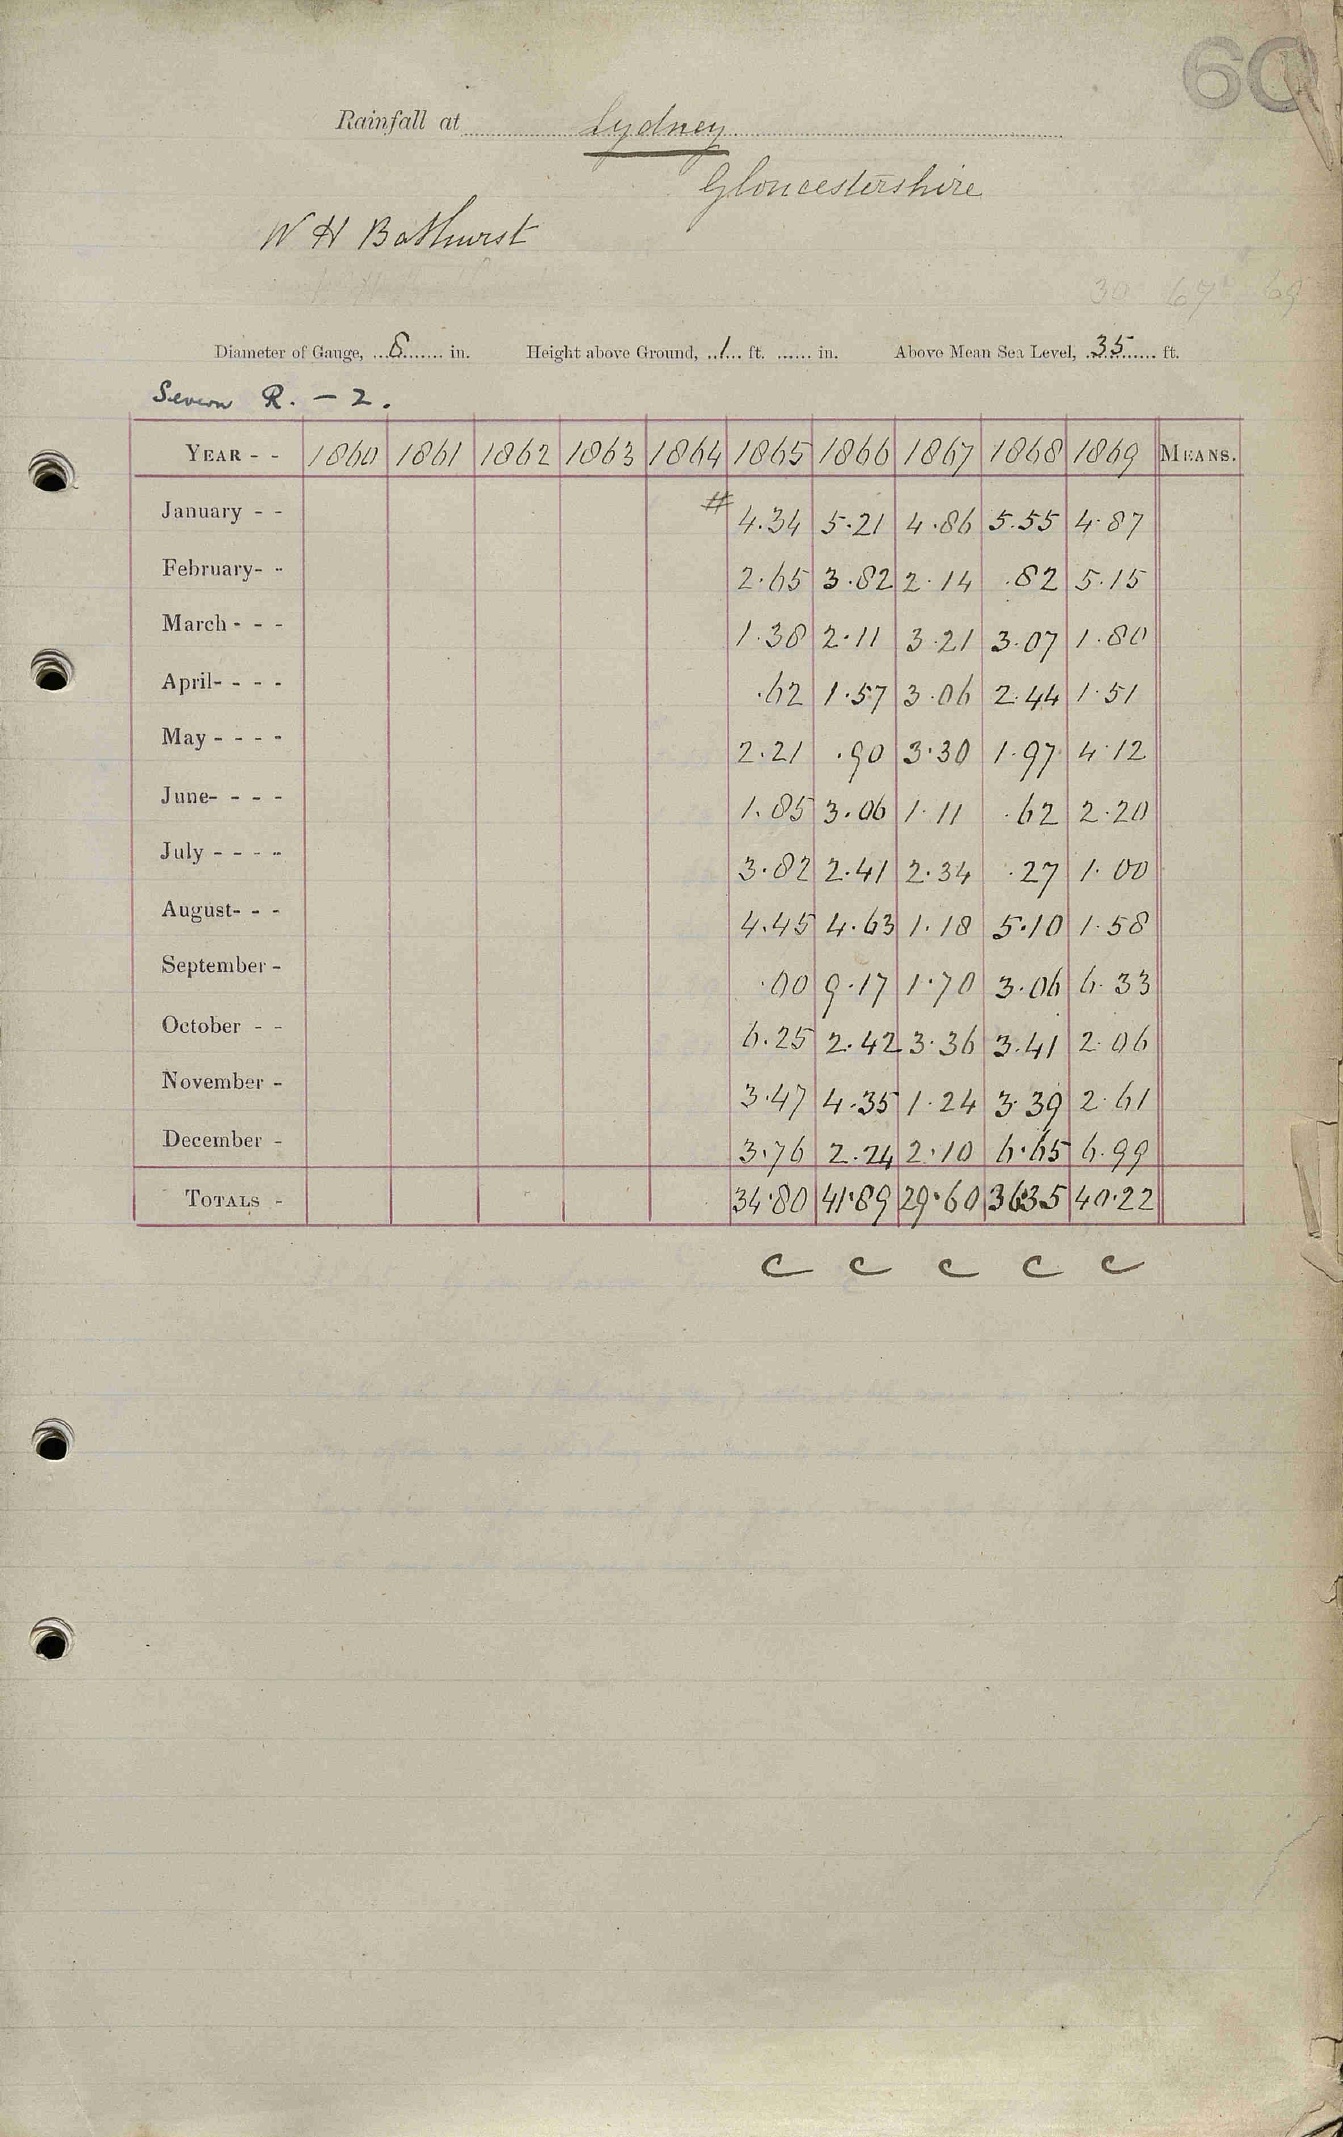 60
Rainfall at Lydney
Gloucestershire
W H Bathurst
30 67 69
Diameter of Gauge, 8 in. Height above Ground, 1 ft. in. Above Mean Sea Level, 35 ft.
Severn R. – 2.
YEAR - - 1860 1861 1862 1863 1864 1865 1866 1867 1868 1869 MEANS.
January - - # 4.34 5.21 4.86 5.55 4.87
February- - 2.65 3.82 2.14 .82 5.15
March - - - 1.38 2.11 3.21 3.07 1.80
April- - - - .62 1.57 3.06 2.44 1.51
May - - - - 2.21 .90 3.30 1.97 4.12
June- - - - 1.85 3.06 1.11 .62 2.20
July - - - - 3.82 2.41 2.34 .27 1.00
August- - - 4.45 4.63 1.18 5.10 1.58
September - .00 9.17 1.70 3.06 6.33
October - - 6.25 2.42 3.36 3.41 2.06
November - 3.47 4.35 1.24 3.39 2.61
December - 3.76 2.24 2.10 6.65 6.99
TOTALS - 34.80 41.89 29.60 36.35 40.22
c c c c c